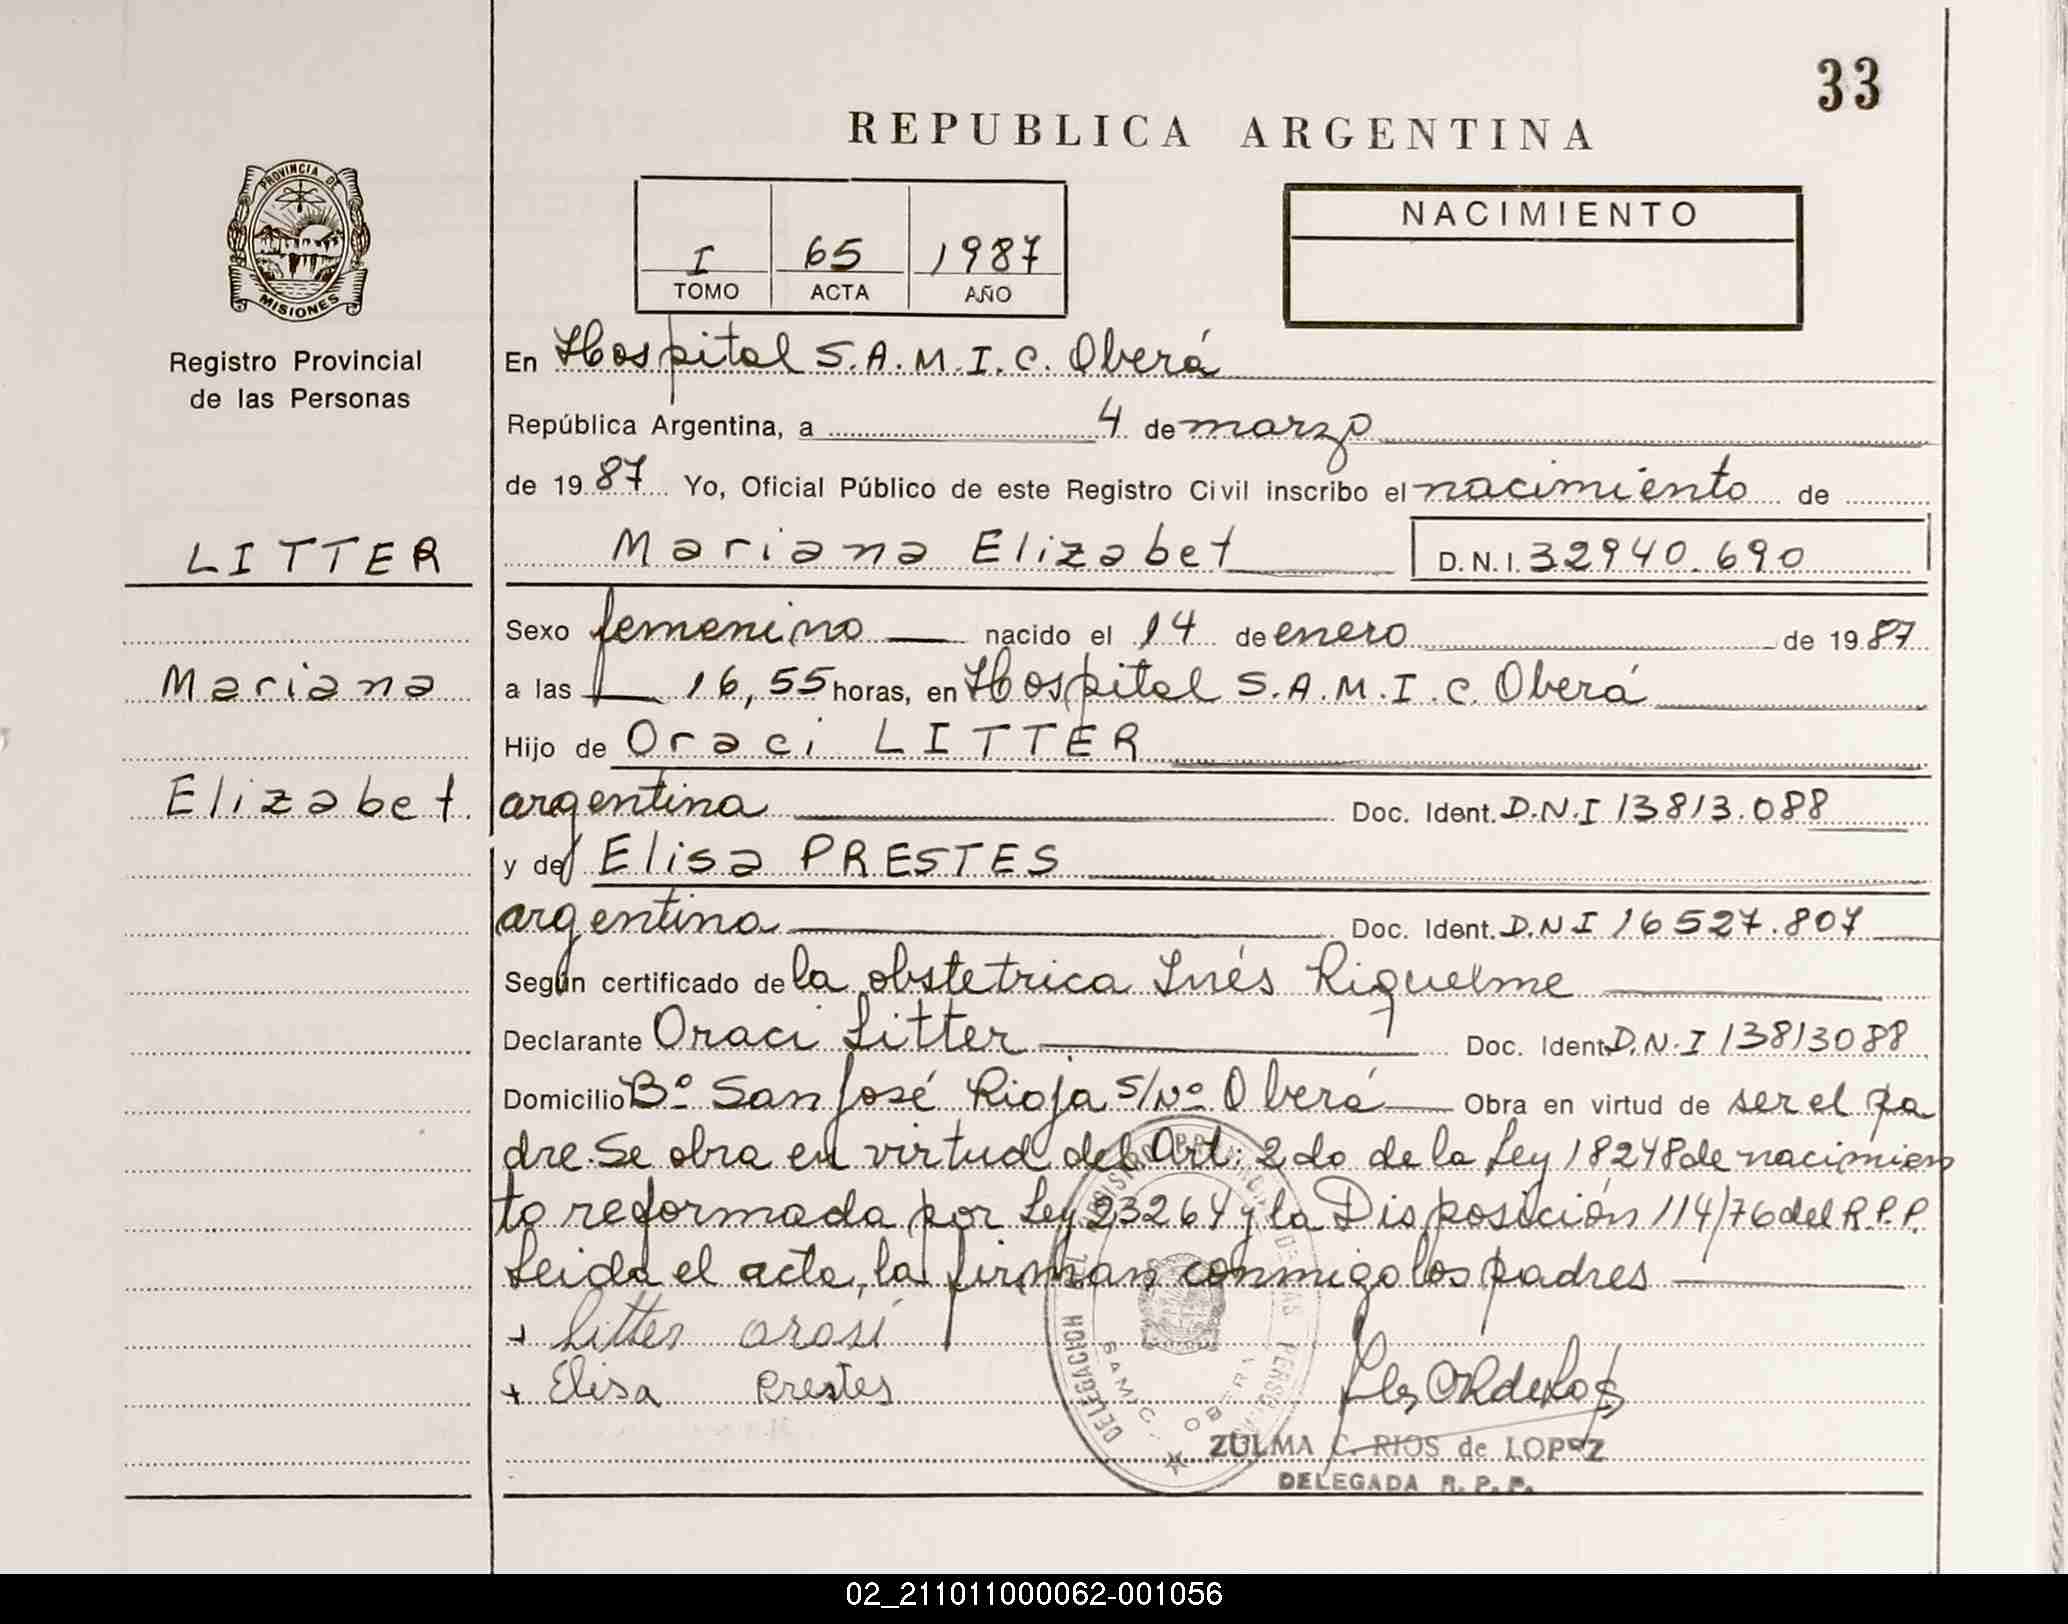 33
REPUBLICA ARGENTINA
PROVINCIA DE
MISIONES
Registro Provincial
de las Personas
I 65 1987
TOMO ACTA AÑO
NACIMIENTO
En Hospital S.A.M.I.C. Oberá
República Argentina, a 4 de marzo
de 1987 Yo, Oficial Público de este Registro Civil inscribo el nacimiento de
LITTER
Mariana Elizabet D.N.I. 32940.690
Sexo femenino nacido el 14 de enero de 1987
Mariana
a las 16,55 horas, en Hospital S.A.M.I.C. Oberá
Hijo de Oraci LITTER
Elizabet.
argentina Doc. Ident. D.N.I 13813.088
y de Elisa PRESTES
argentina Doc. Ident. D.N.I 16527.807
Según certificado de la obstetrica Inés Riquelme
Declarante Oraci Litter Doc. Ident D.N.I 13813088
Domicilio Bº San José Rioja S/Nº Oberá Obra en virtud de ser el pa
dre. Se obra en virtud del Art. 2do de la Ley 18248 de nacimien
to reformada por Ley 23264 y la Disposición 114/76 del R.P.P.
Leida el acta, la firman conmigo los padres
+ Litter orasi
+ Elisa Prestes
DELEGACION
SAMIC. OBERA
ZULMA C. RIOS de LOPEZ
DELEGADA R.P.P.
02_211011000062-001056